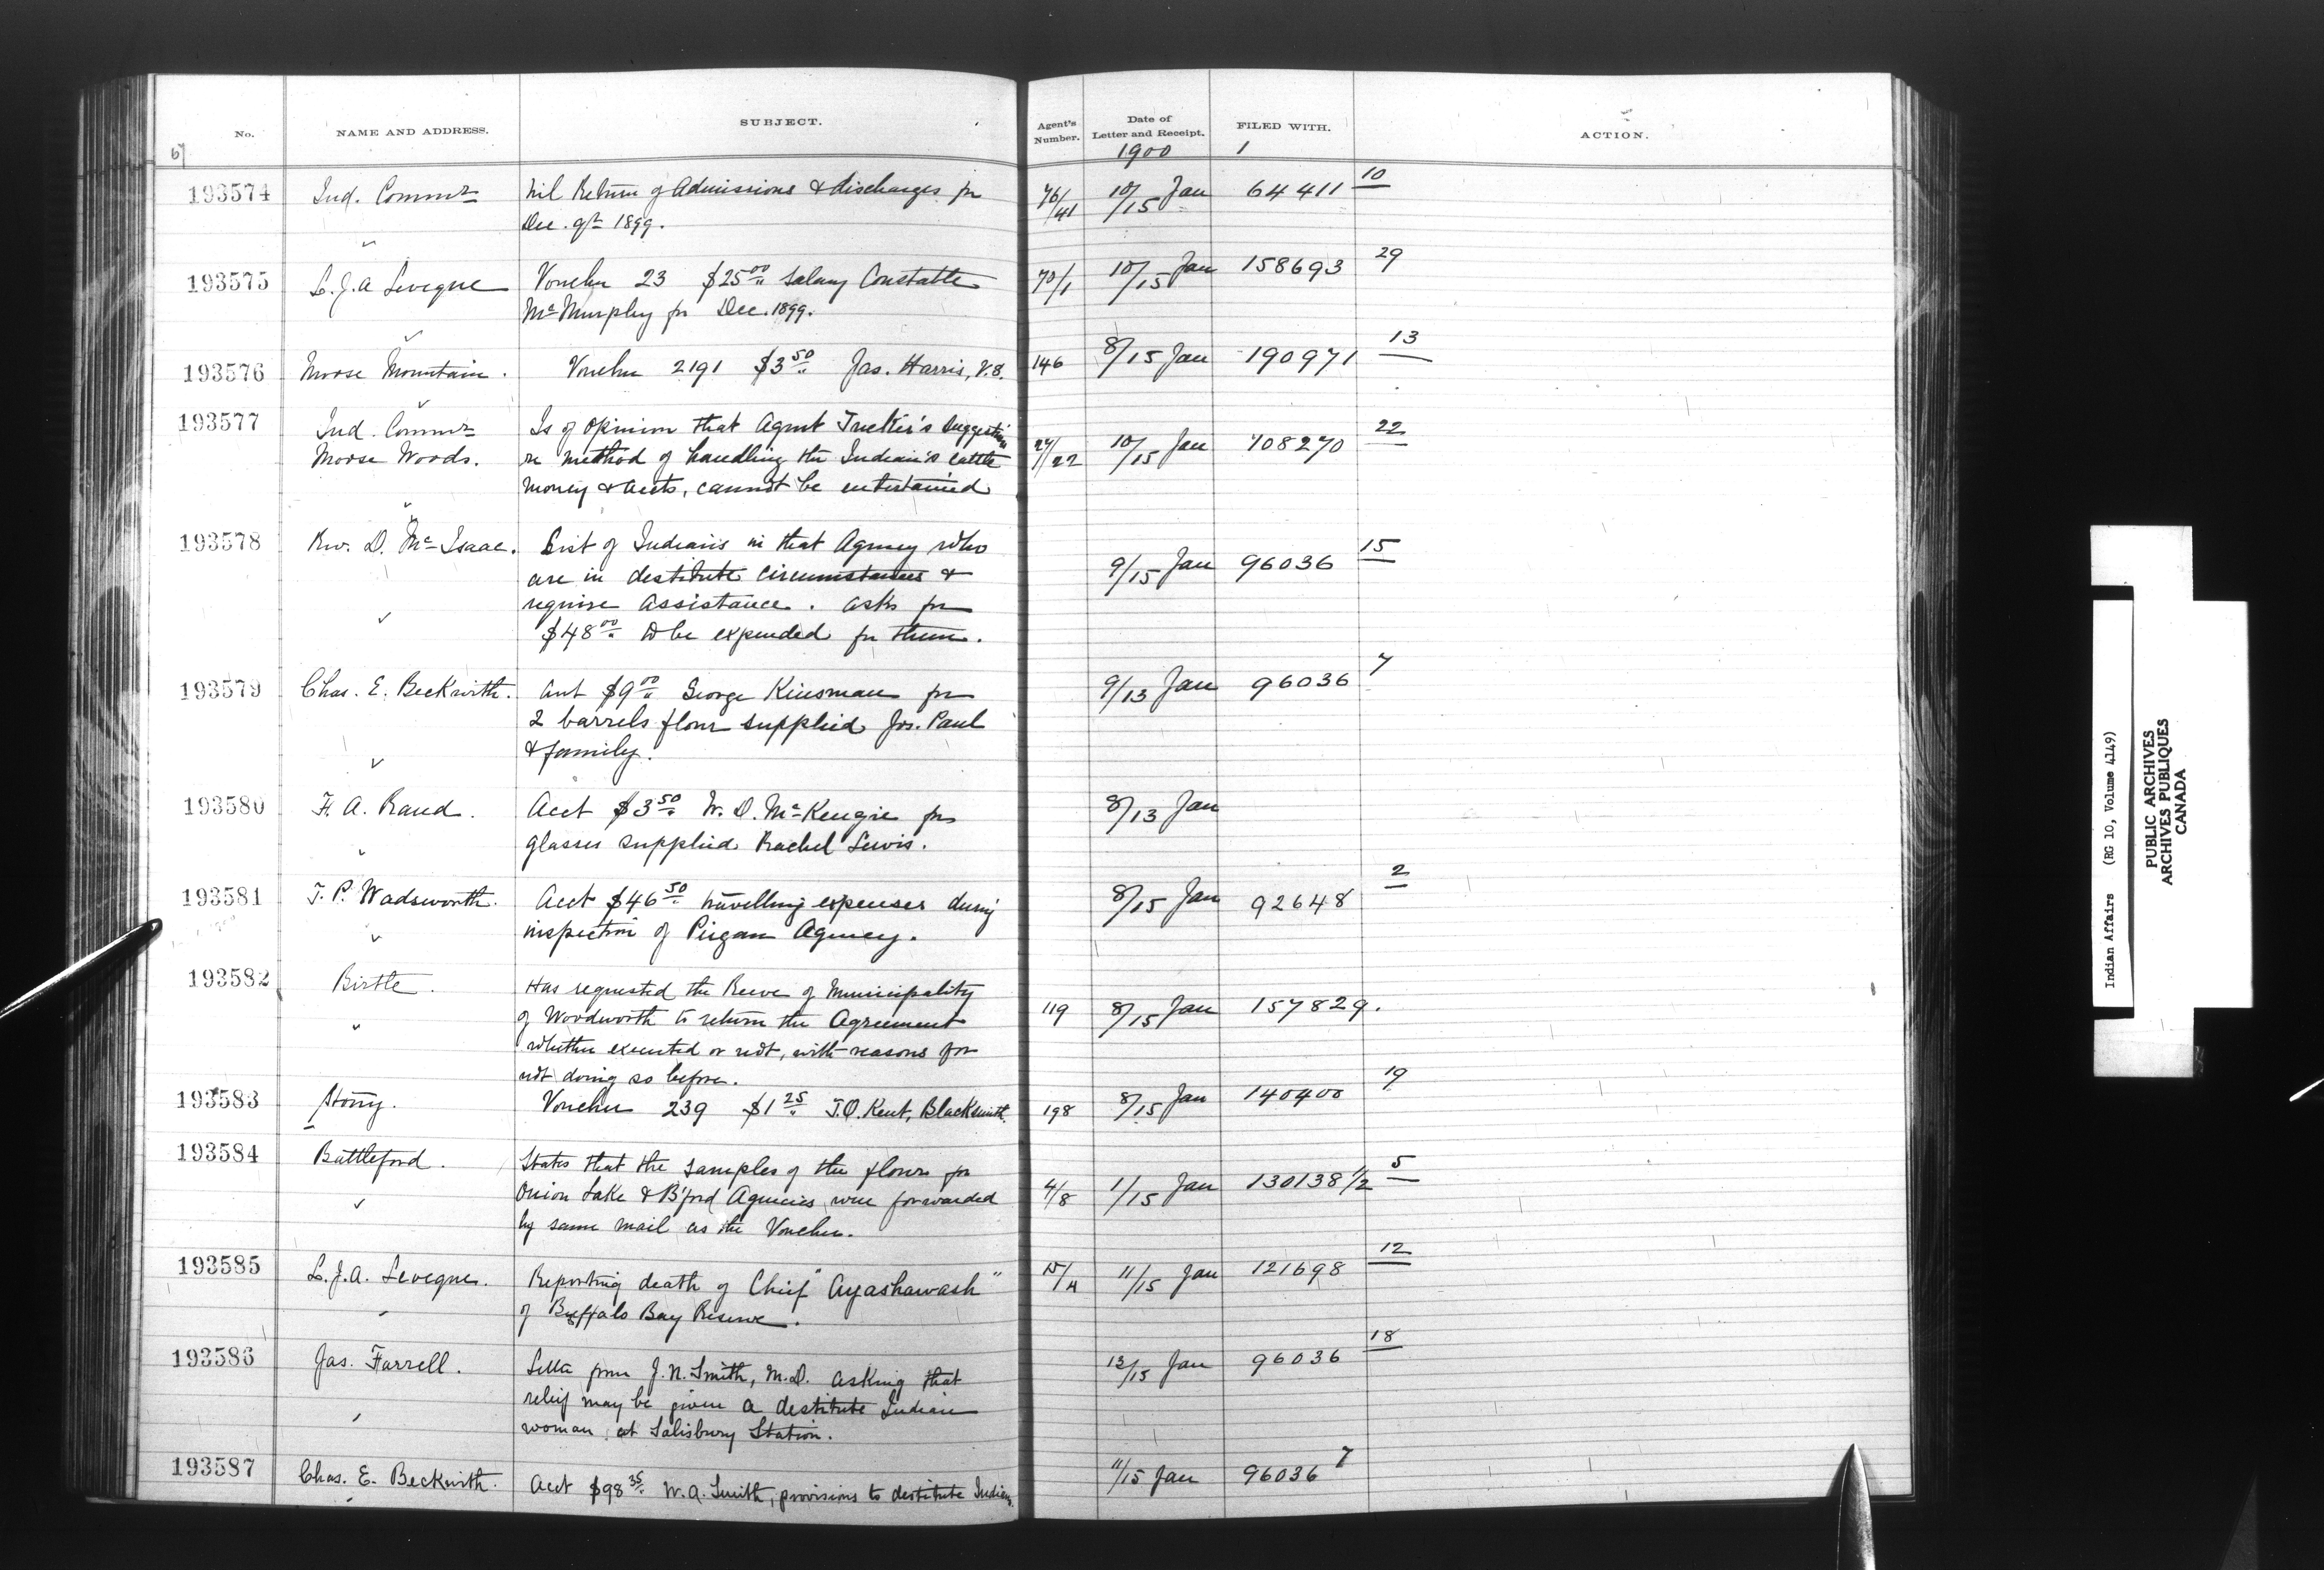 No. NAME AND ADDRESS. SUBJECT. Agent's Number. Date of Letter and Receipt. FILED WITH. ACTION.
1900 1
193574 Ind. Commr Nil Return of Admissions & discharges for 76/41 10/15 Jan 64411 10
Dec. qr 1899.
193575 L.J.A Leveque Voucher 23 $25.00 Salary Constable 70/1 10/15 Jan 158693 29
McMurphy for Dec. 1899.
193576 Moose Mountain. Voucher 2191 $3.50 Jas. Harris, V.S. 146 8/15 Jan 190971 13
193577 Ind. Commr Is of opinion that Agent Tucker's suggestion
Moose Woods. re method of handling the Indian's cattle 27/22 10/15 Jan 108270 22
money & accts, cannot be entertained
193578 Rev. D. McIsaac. List of Indians in that Agency who
are in destitute circumstances & 9/15 Jan 96036 15
require assistance. asks for
$48.00 to be expended for them.
193579 Chas. E. Beckwith. Acct $9.00 George Kinsman for 9/13 Jan 96036 7
2 barrels flour supplied Jos. Paul
& family.
193580 F. A. Rand. Acct $3.50 W. D. McKenzie for 8/13 Jan
glasses supplied Rachel Lewis.
193581 T. P. Wadsworth. Acct $46.50 travelling expenses during 8/15 Jan 92648 2
inspection of Piegan Agency.
193582 Birtle. Has requested the Reeve of Municipality
of Woodworth to return the Agreement 119 8/15 Jan 157829.
whether executed or not, with reasons for
not doing so before.
193583 Stony. Voucher 239 $1.25 T.O. Kent, Blacksmith. 198 8/15 Jan 140400 19
193584 Battleford. States that the samples of the flour for
Onion Lake & B'ford Agencies were forwarded 4/8 1/15 Jan 130138 1/2 5
by same mail as the Voucher.
193585 L.J.A. Leveque. Reporting death of Chief "Ayashawash" 15/4 11/15 Jan 121698 12
of Buffalo Bay Reserve.
193586 Jas. Farrell. Letter from J. N. Smith, M.D. asking that 13/15 Jan 96036 18
relief may be given a destitute Indian
woman at Salisbury Station.
193587 Chas. E. Beckwith. Acct $98.35 W. A. Smith, provisions to destitute Indians. 11/15 Jan 96036 7
Indian Affairs (RG 10, Volume 4149)
PUBLIC ARCHIVES
ARCHIVES PUBLIQUES
CANADA